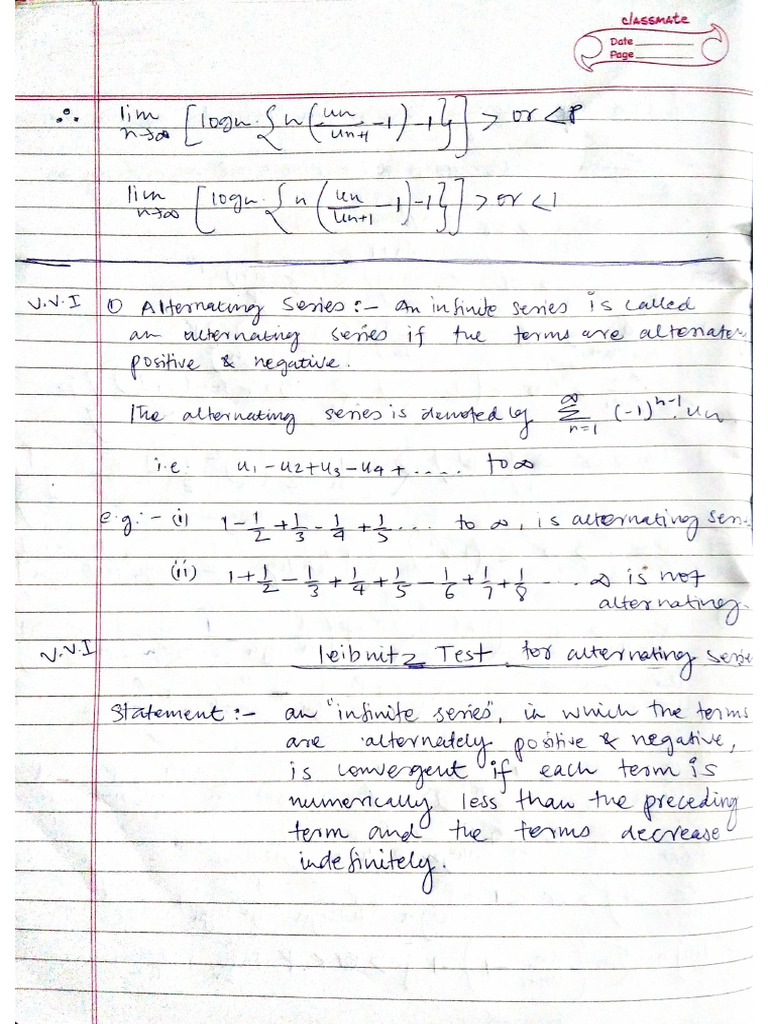 classmate
Date
Page
∴ lim n→∞ [logn.{n(un/un+1 -1)-1}] > or < P
lim n→∞ [logn.{n(un/un+1 -1)-1}] > or < 1
V.V.I ① Alternating Series :- An infinite series is called
an alternating series if the terms are alternate
positive & negative.
The alternating series is denoted by ∞ Σ n=1 (-1)^n-1 . un
i.e. u1 - u2 + u3 - u4 + ..... to ∞
e.g:- (i) 1 - 1/2 + 1/3 - 1/4 + 1/5 ... to ∞, is alternating seri
(ii) 1 + 1/2 - 1/3 + 1/4 + 1/5 - 1/6 + 1/7 + 1/8 - .. ∞ is not
alternating.
V.V.I Leibnitz Test for alternating serie
Statement :- an "infinite series", in which the terms
are alternately positive & negative,
is convergent if each term is
numerically less than the preceding
term and the terms decrease
indefinitely.